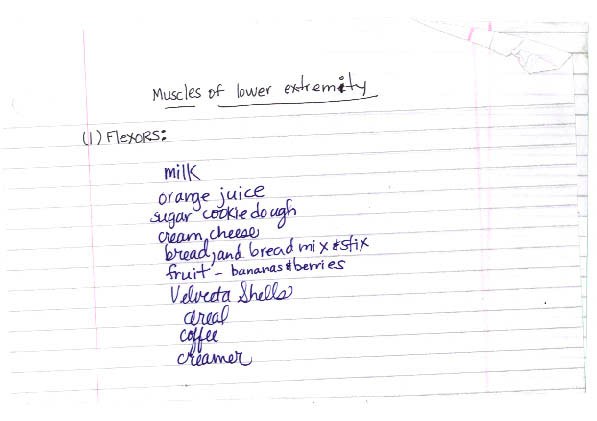 Muscles of lower extremity
(1) FlexORS:
milk
orange juice
sugar cookie dough
cream cheese
bread, and bread mix & stix
fruit - bananas & berries
Velveeta Shells
cereal
coffee
creamer